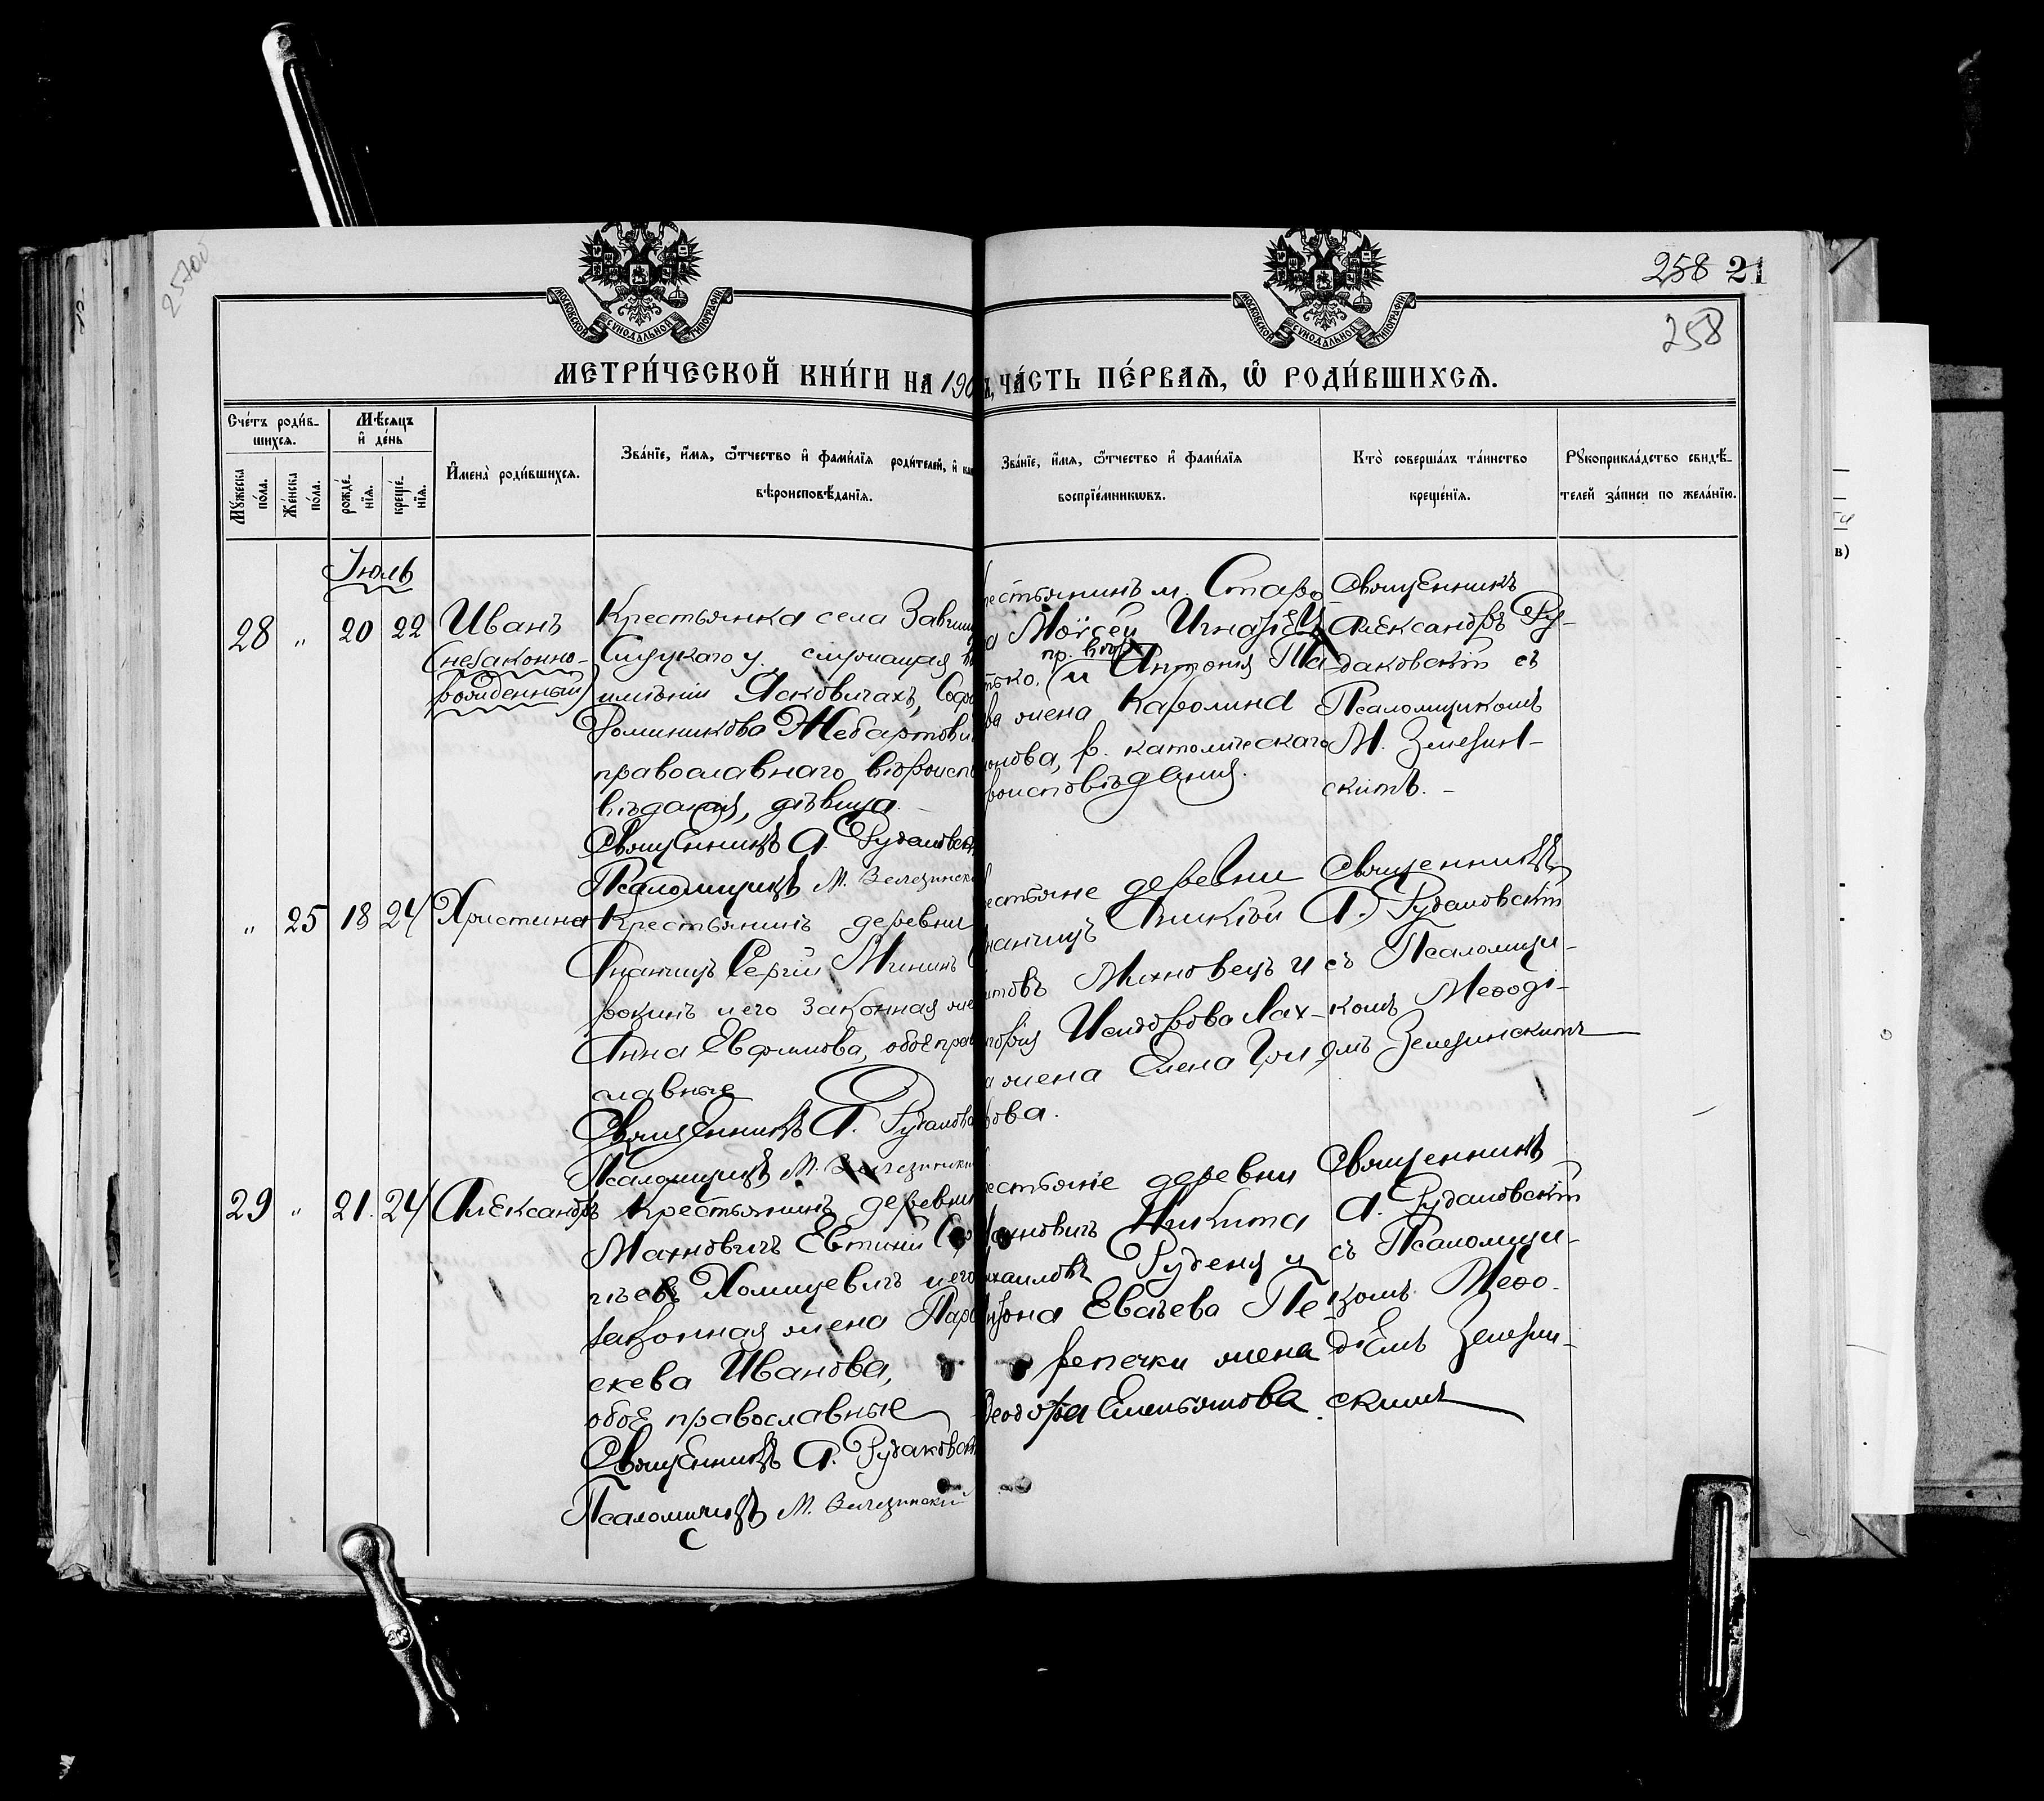 257об
258 21
258
МОСКОВСКОЙ СѴНОДАЛЬНОЙ ТИПОГРАФІИ
МОСКОВСКОЙ СѴНОДАЛЬНОЙ ТИПОГРАФІИ
МЕТРИ́ЧЕСКОЙ КНИ́ГИ НА 190
ЧА́СТЬ ПЕ́РВАѦ, Ѽ РОДИ́ВШИХСѦ.
Сче́тъ роди́в-
шихсѧ.
Мꙋ́жеска по́ла.
Же́нска по́ла.
Мѣ́сѧцъ
и҆ де́нь
рожде́-
нїѧ.
креще́-
нїѧ.
И҆мена̀ роди́вшихсѧ.
Зва́нїе, и҆́мѧ, ѻ҆́тчество и҆ фами́лїѧ роди́телей, и҆
вѣроисповѣ́данїѧ.
Зва́нїе, и҆́мѧ, ѻ҆́тчество и҆ фами́лїѧ
воспрїе́мникѡвъ.
Кто̀ соверша́лъ та́инство
креще́нїѧ.
Рꙋкоприкла́дство свидѣ́-
телей за́писи по жела́нїю.
Іюль
28 „ 20 22 Иванъ
(незаконно-
рожденный)
Крестьянка села
Слуцкаго у. служащая
имѣніи Ясковичахъ, Соф
Доминикова Жебартови
православнаго вѣроиспо
вѣданія, дѣвица.
Священникъ А. Рудаковск
Псаломщикъ М. Зелезинск
естьянинъ м. Старо
Моѵсей Игнатіев
пр. вѣр.
тько. и Антонія
ва жена Каролина
онова, р. католическаго
роисповѣданія.
Священникъ
Александръ Ру-
даковскій съ
Псаломщикомъ
М. Зелезин-
скимъ.
„ 25 18 24 Христина
Крестьянинъ деревни
Ананчицъ Сергій Мининъ
рокинъ и его законная же
Анна Евфимова, обое прав
славные
Священникъ А. Рудаковс
Псаломщикъ М. Зелезински
естьяне деревни
нанчицъ
итовъ Михновецъ и
Исидорова Лах-
а жена Елена
рова.
Священникъ
А. Рудаковскій
съ Псаломщи-
комъ Меѳоді-
емъ Зелезинскимъ
29 „ 21. 24 Александръ
Крестьянинъ деревни
Махновичъ Евтихій Сер
гіевъ Хомицевичъ и его
законная жена Пара
скева Иванова,
обое православные
Священникъ А. Рудаковск
Псаломщикъ М. Зелезинскій
естьяне деревни
ахновичъ Никита
ихаиловъ Руденя и
Евсѣева Пе-
репечки жена
Ѳеодора Емельянова
Священникъ
А. Рудаковскій
съ Псаломщи-
комъ Меѳо-
діемъ Зелезин-
скимъ